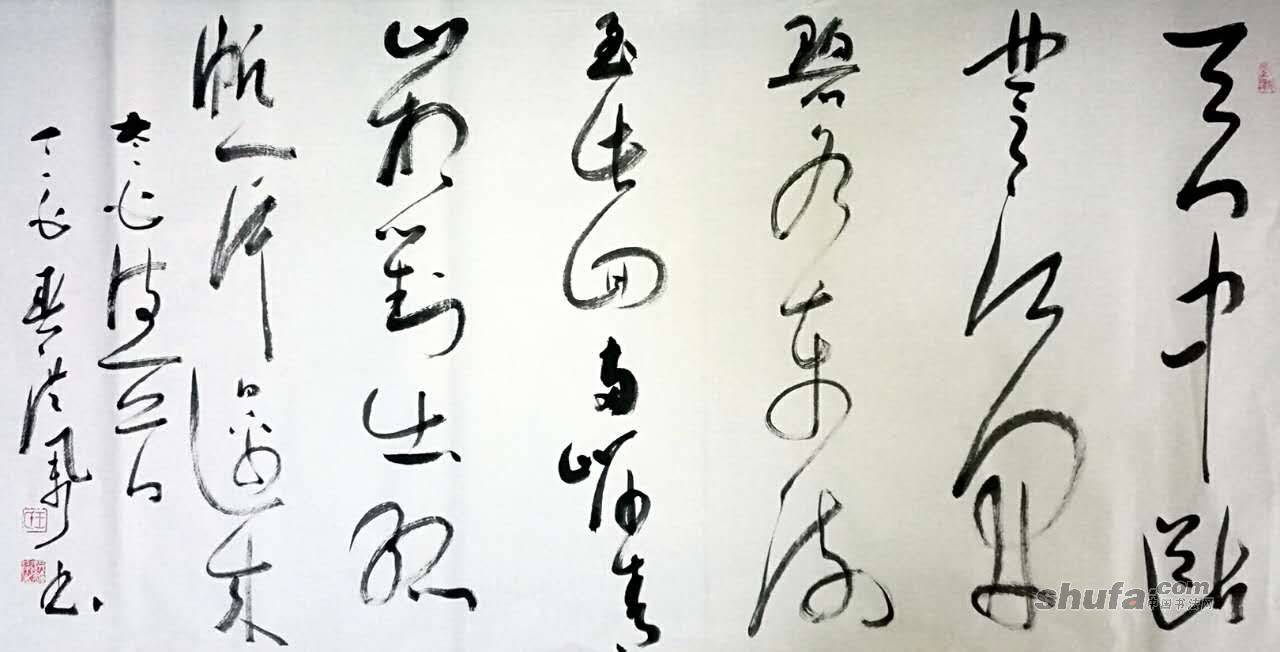 天门中断
楚江开
碧水东流
至此回两岸青
山相对出孤
帆一片日边来
丁酉
书
shufa.com
中国书法网